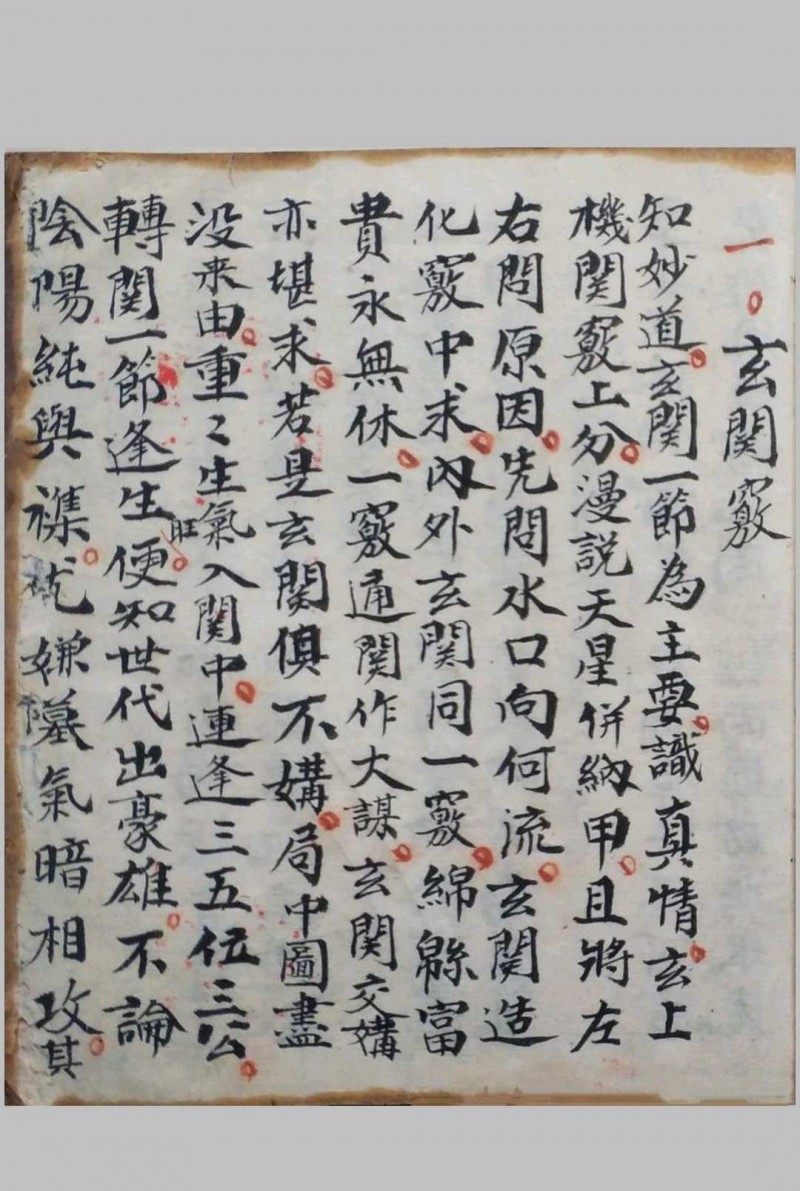 一。玄關竅
知妙道。玄關一節為主要。識真情。玄上
機關竅上分。漫說天星併納甲。且將左
右問原因。先問水口向何流。玄關造
化竅中求。內外玄關同一竅。綿緜富
貴永無休。一竅通關作大謀。玄關交媾
亦堪求。若是玄關俱不媾。局中圖盡
没来由。重〻生氣入關中。連逢三五位三公。
轉關一節逢生旺。便知世代出豪雄。不論
陰陽純與襍。尤嫌墓氣暗相攻。其